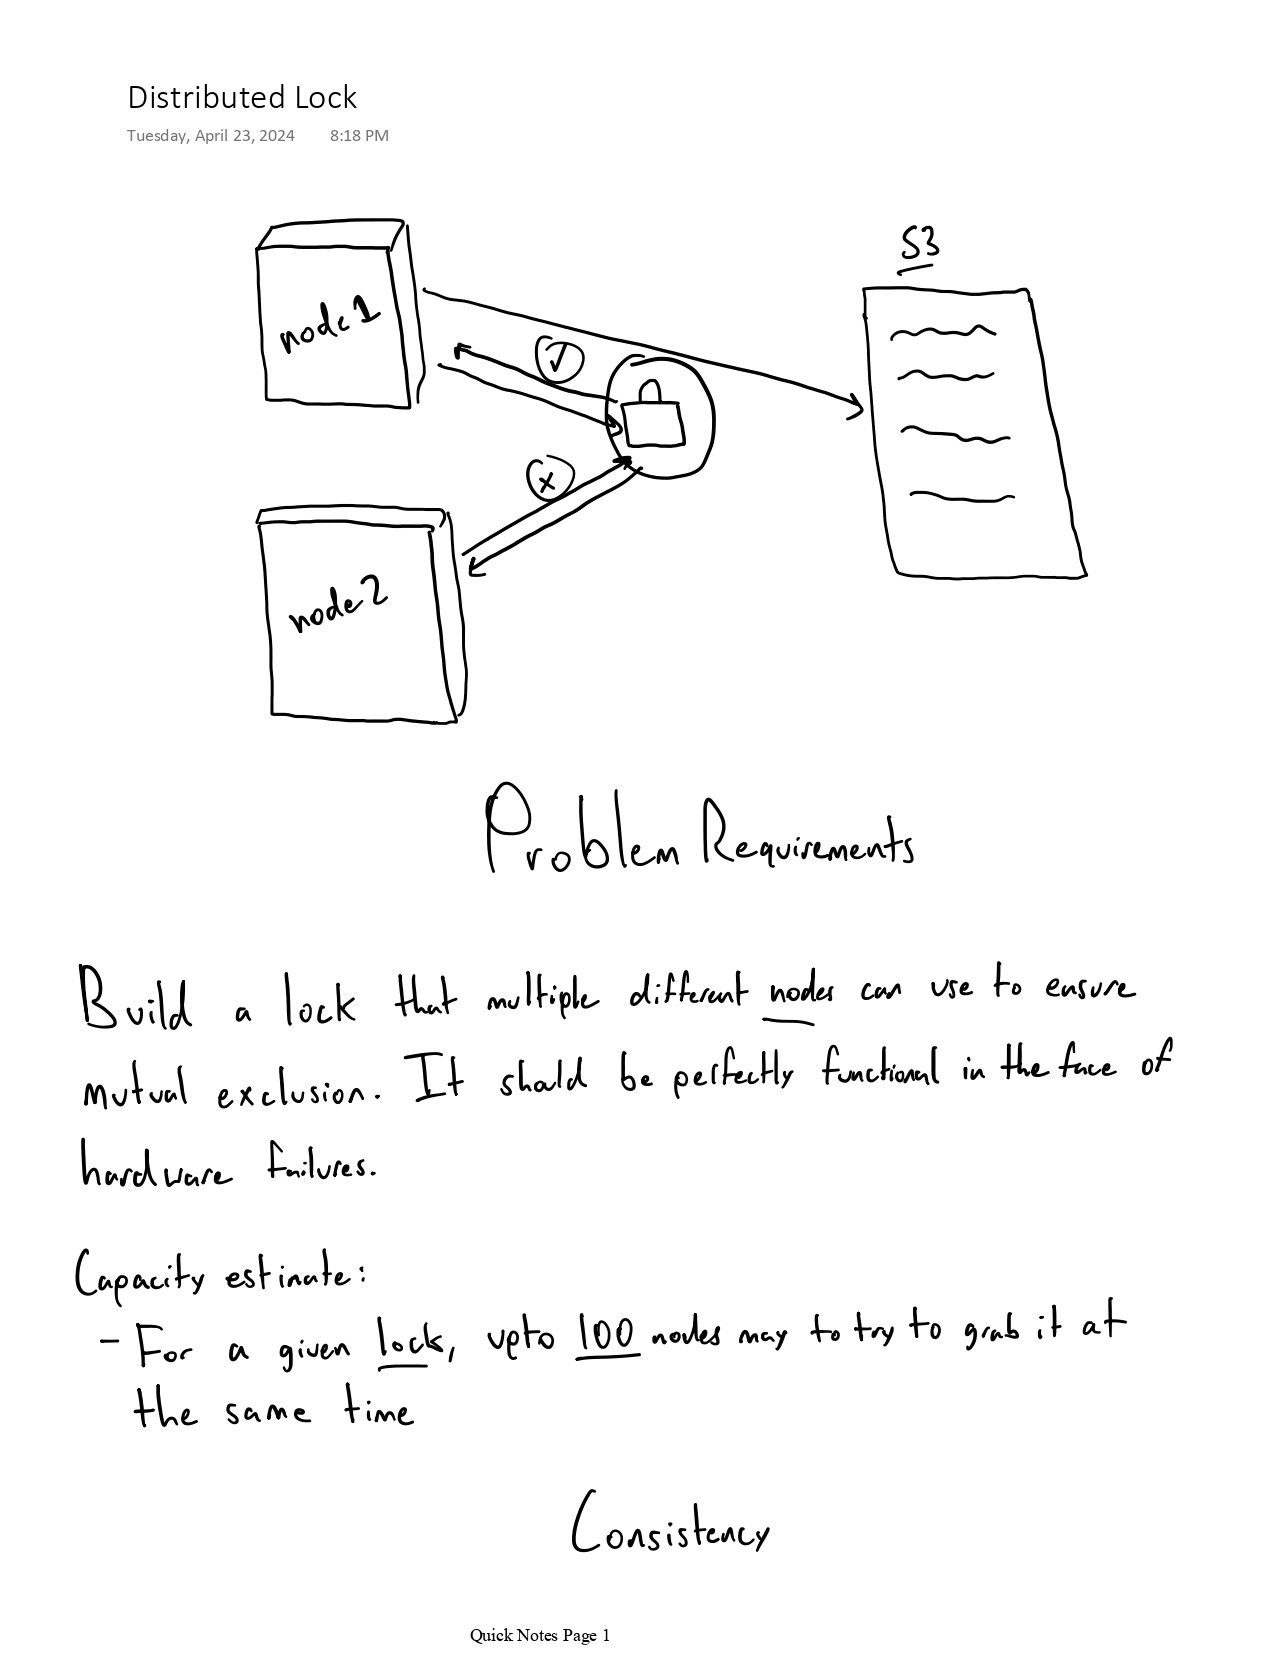 Distributed Lock
Tuesday, April 23, 2024 8:18 PM
S3
node 1
node 2
Problem Requirements
Build a lock that multiple different nodes can use to ensure
mutual exclusion. It should be perfectly functional in the face of
hardware failures.
Capacity estimate:
- For a given lock, upto 100 nodes may to try to grab it at
the same time
Consistency
Quick Notes Page 1